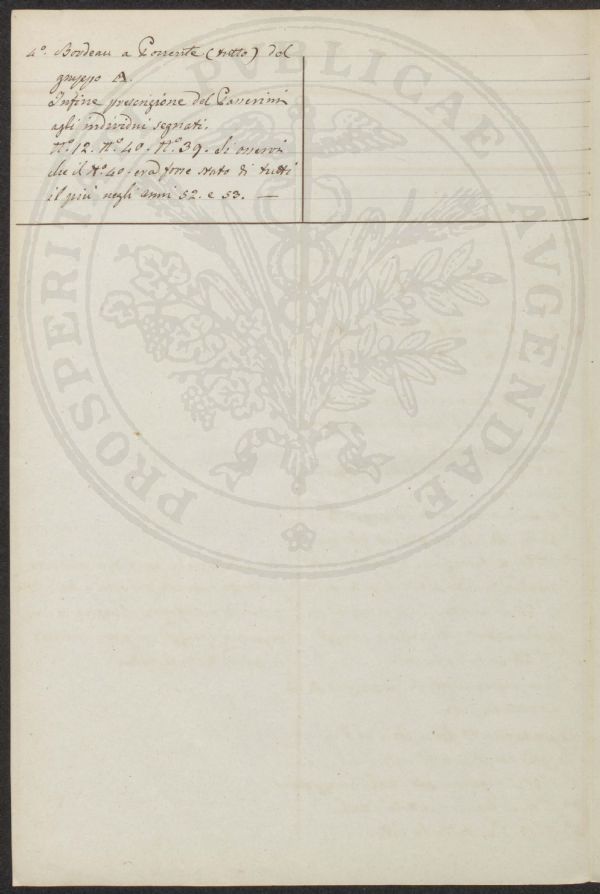 4º. Bordeau a Ponente (tutto) del
gruppo A.
Infine presenzione del Passerini
agli individui segnati.
Nº. 12. Nº. 40. Nº. 39. Si osservi
che il Nº. 40. era forse stato di tutti
il più negli anni 52. e 53. —
PROSPERITATI PUBLICAE AVGENDAE